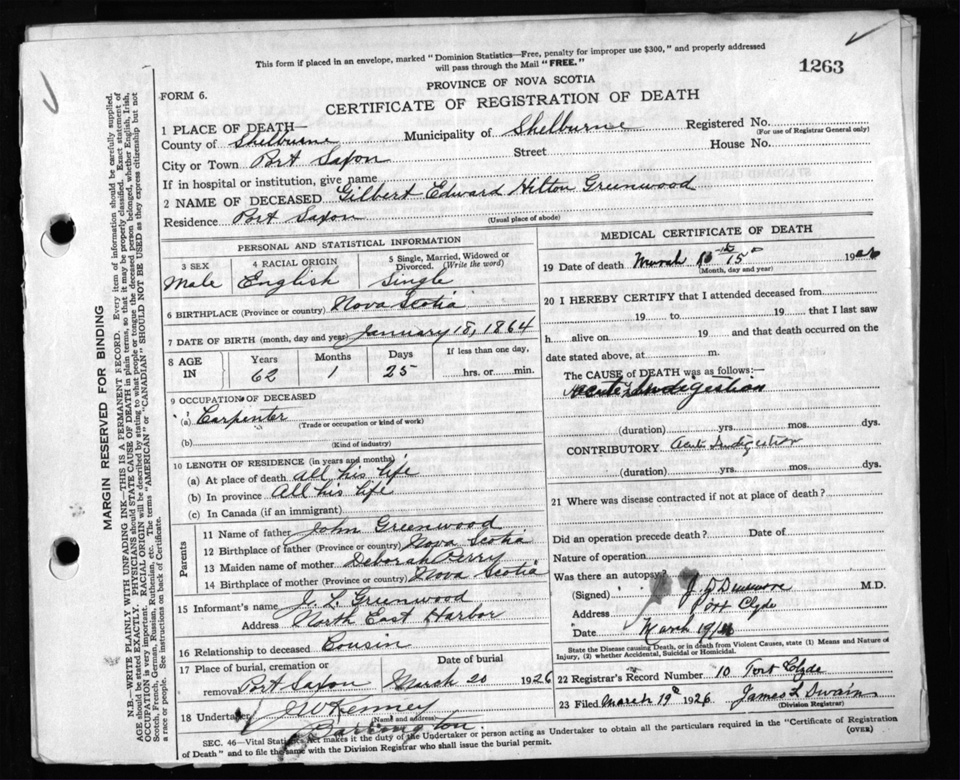 This form if placed in an envelope, marked "Dominion Statistics—Free, penalty for improper use $300," and properly addressed
will pass through the Mail "FREE."
1263
PROVINCE OF NOVA SCOTIA
FORM 6.
CERTIFICATE OF REGISTRATION OF DEATH
1 PLACE OF DEATH—
County of Shelburne Municipality of Shelburne Registered No.
(For use of Registrar General only)
City or Town Port Saxon Street House No.
If in hospital or institution, give name
2 NAME OF DECEASED Gilbert Edward Hilton Greenwood
Residence Port Saxon
(Usual place of abode)
PERSONAL AND STATISTICAL INFORMATION
3 SEX 4 RACIAL ORIGIN 5 Single, Married, Widowed or Divorced. (Write the word)
Male English Single
6 BIRTHPLACE (Province or country) Nova Scotia
7 DATE OF BIRTH (month, day and year) January 18, 1864
8 AGE IN Years Months Days If less than one day,
62 1 25 hrs. or min.
9 OCCUPATION OF DECEASED
(a) Carpenter
(Trade or occupation or kind of work)
(b)
(Kind of industry)
10 LENGTH OF RESIDENCE (in years and months)
(a) At place of death All his life
(b) In province All his life
(c) In Canada (if an immigrant)
Parents
11 Name of father John Greenwood
12 Birthplace of father (Province or country) Nova Scotia
13 Maiden name of mother Deborah Perry
14 Birthplace of mother (Province or country) Nova Scotia
15 Informant's name J. L. Greenwood
Address North East Harbor
16 Relationship to deceased Cousin
17 Place of burial, cremation or Date of burial
removal Port Saxon March 20 1926
18 Undertaker J W Kenney
(Name and address)
Barrington.
MEDICAL CERTIFICATE OF DEATH
19 Date of death March 15 19
(Month, day and year)
20 I HEREBY CERTIFY that I attended deceased from
19 to 19 that I last saw
h alive on 19 and that death occurred on the
date stated above, at m.
The CAUSE of DEATH was as follows:—
Acute Indigestion
(duration) yrs. mos. dys.
CONTRIBUTORY Acute Indigestion
(duration) yrs. mos. dys.
21 Where was disease contracted if not at place of death?
Did an operation precede death? Date of
Nature of operation
Was there an autopsy?
(Signed) M.D.
Address Port Clyde
Date March 19/
State the Disease causing Death, or in death from Violent Causes, state (1) Means and Nature of
Injury, (2) whether Accidental, Suicidal or Homicidal.
22 Registrar's Record Number 10 Port Clyde
23 Filed March 19th 1926 James L Swain
(Division Registrar)
SEC. 46—Vital Statistics Act makes it the duty of the Undertaker or person acting as Undertaker to obtain all the particulars required in the "Certificate of Registration
of Death" and to file the same with the Division Registrar who shall issue the burial permit.
(OVER)
MARGIN RESERVED FOR BINDING
N.B.—WRITE PLAINLY WITH UNFADING INK—THIS IS A PERMANENT RECORD. Every item of information should be carefully supplied.
AGE should be stated EXACTLY. PHYSICIANS should STATE CAUSE OF DEATH in plain terms, so that it may be properly classified. Exact statement of
OCCUPATION is very important. RACIAL ORIGIN will be described by stating to what people or tongue the deceased person belonged, whether English, Irish,
Scotch, French, German, Russian, Ruthenian, etc. The terms "AMERICAN" or "CANADIAN" SHOULD NOT BE USED as they express citizenship but not
a race or people. See instructions on back of Certificate.